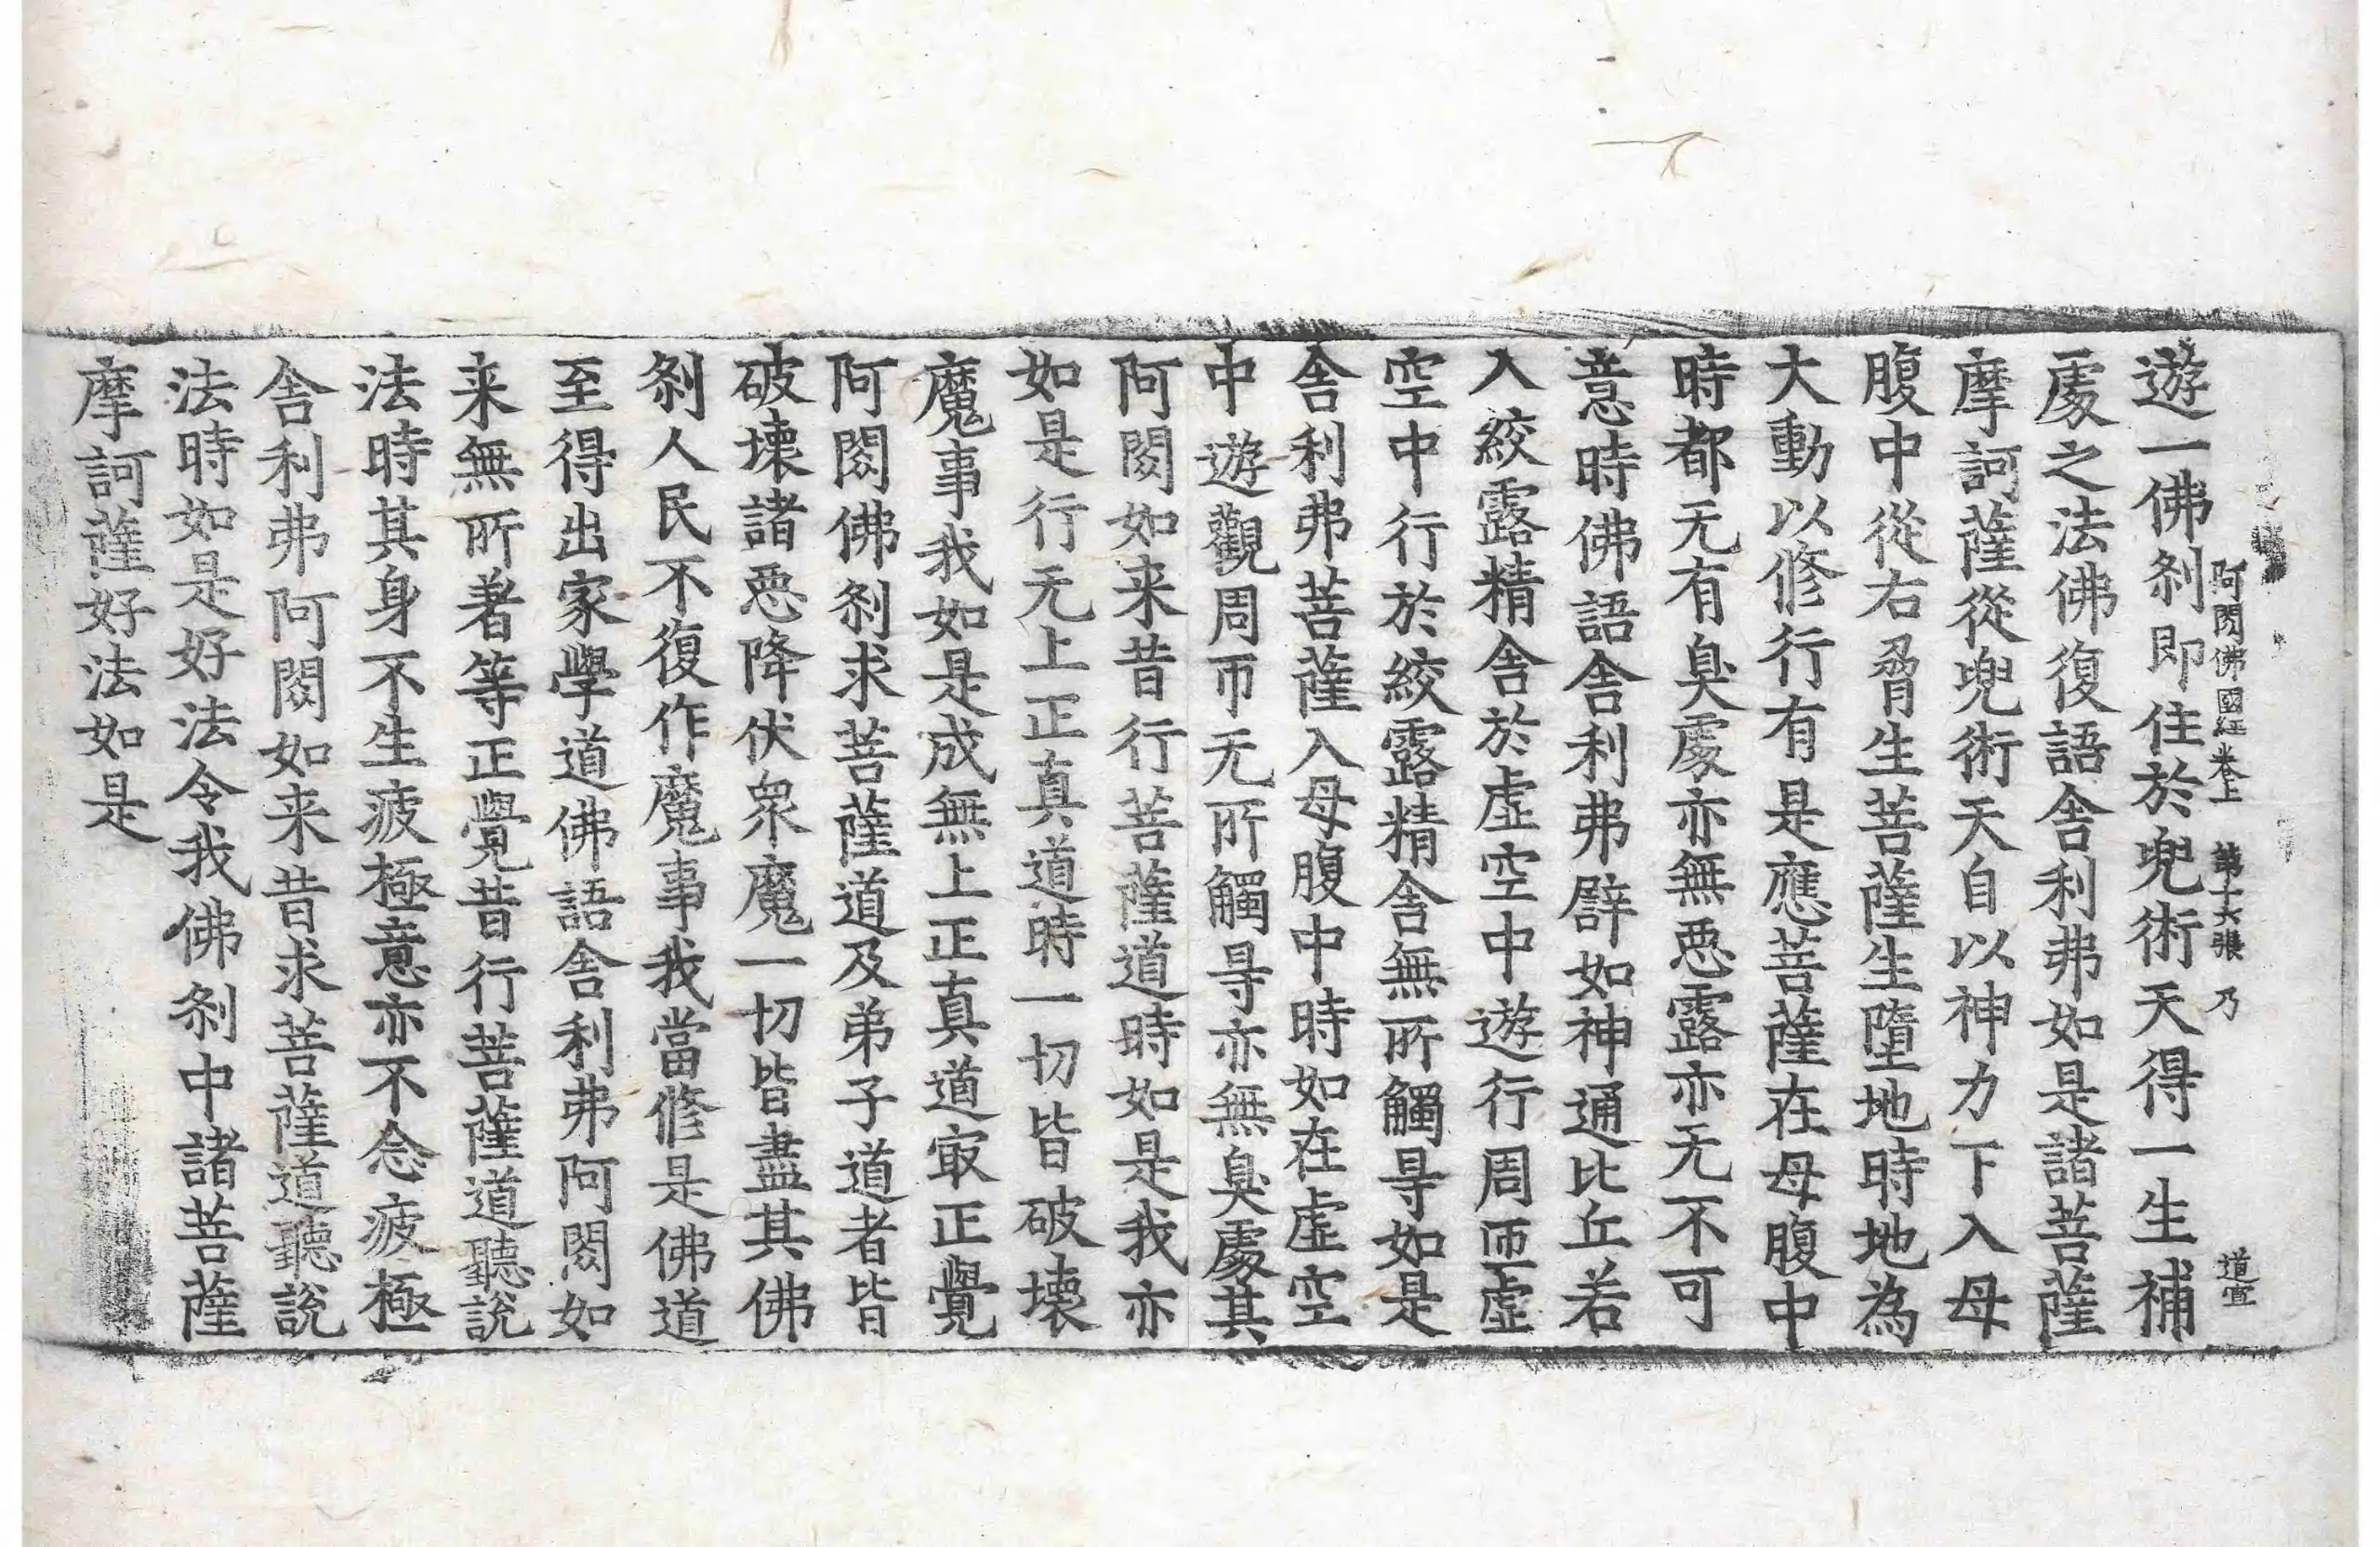 阿閦佛國經卷上 第十六張 乃 道宣
遊一佛刹即住於兜術天得一生補
處之法佛復語舎利弗如是諸菩薩
摩訶薩從兜術天自以神力下入母
腹中從右脅生菩薩生墮地時地為
大動以修行有是應菩薩在母腹中
時都无有臭處亦無惡露亦无不可
意時佛語舎利弗辟如神通比丘若
入絞露精舎於虛空中遊行周匝虛
空中行於絞露精舎無所觸㝵如是
舎利弗菩薩入母腹中時如在虛空
中遊觀周帀无所觸㝵亦無臭處其
阿閦如来昔行菩薩道時如是我亦
如是行无上正真道時一切皆破壊
魔事我如是成無上正真道㝡正覺
阿閦佛刹求菩薩道及弟子道者皆
破壊諸惡降伏衆魔一切皆盡其佛
刹人民不復作魔事我當修是佛道
至得出家學道佛語舎利弗阿閦如
来無所著等正覺昔行菩薩道聽說
法時其身不生疲極意亦不念疲極
舎利弗阿閦如来昔求菩薩道聽說
法時如是好法令我佛刹中諸菩薩
摩訶薩好法如是